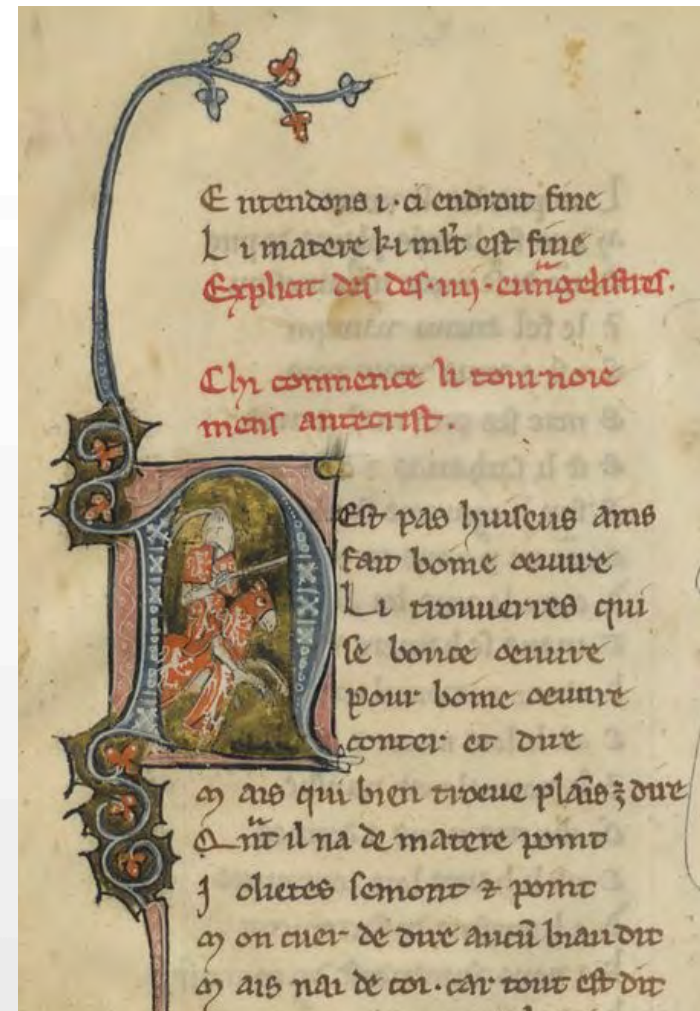 E ntendons i · ci endroit fine
L i matere ki mlt est fine
Explicit des des · iiij · euungelistres .
Chi commence li tournoie
mens antecrist .
N Est pas huiseus ains
fait boine oeuure
Li trouuerres qui
se bouce oeuure
pour boine oeuure
conter et dire
M ais qui bien troeue plais ⁊ dire
Q nt il na de matere point
J olietes semont ⁊ point
M on cuer de dire aucū biau dit
M ais nai de coi · car tout est dit